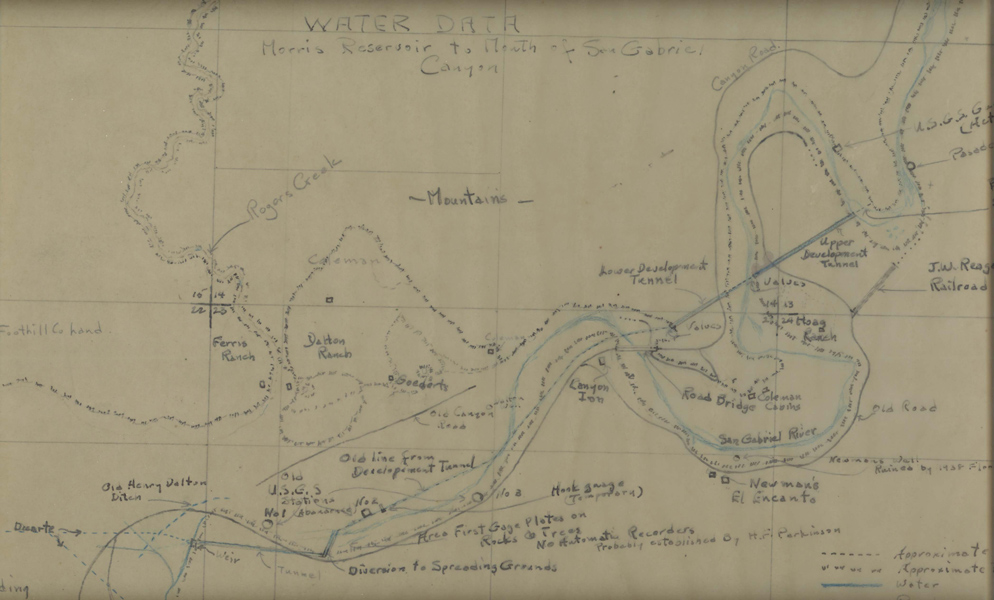 WATER DATA
Morris Reservoir to Mouth of San Gabriel
Canyon
Canyon Road
U.S.G.S. G
Rogers Creek
Mountains
Coleman
Upper
Development
Tunnel
Lower Development
Tunnel
J.W. Reag
Railroad
Valves
15 14
22 23
14 13
23 24
Hoag
Ranch
Valves
Foothill Co land
Ferris
Ranch
Dalton
Ranch
Goedert's
Canyon
Inn
Road Bridge
Coleman
Cabins
Old Canyon
Road
Old Road
San Gabriel River
Old line from
Development Tunnel
Newmans Well
Ruined by 1938 Floo
Newman's
El Encanto
Old Henry Dalton
Ditch
Old
U.S.G.S
Stations
No 1 Abandoned
No 2
No 3
Hook gauge
(Temporary)
Area First Gage Plates on
Rocks & Trees
No Automatic Recorders
Probably established by H.F. Parkinson
Duarte
Weir
Tunnel
Diversion to Spreading Grounds
Approximate
Approximate
Water
ding